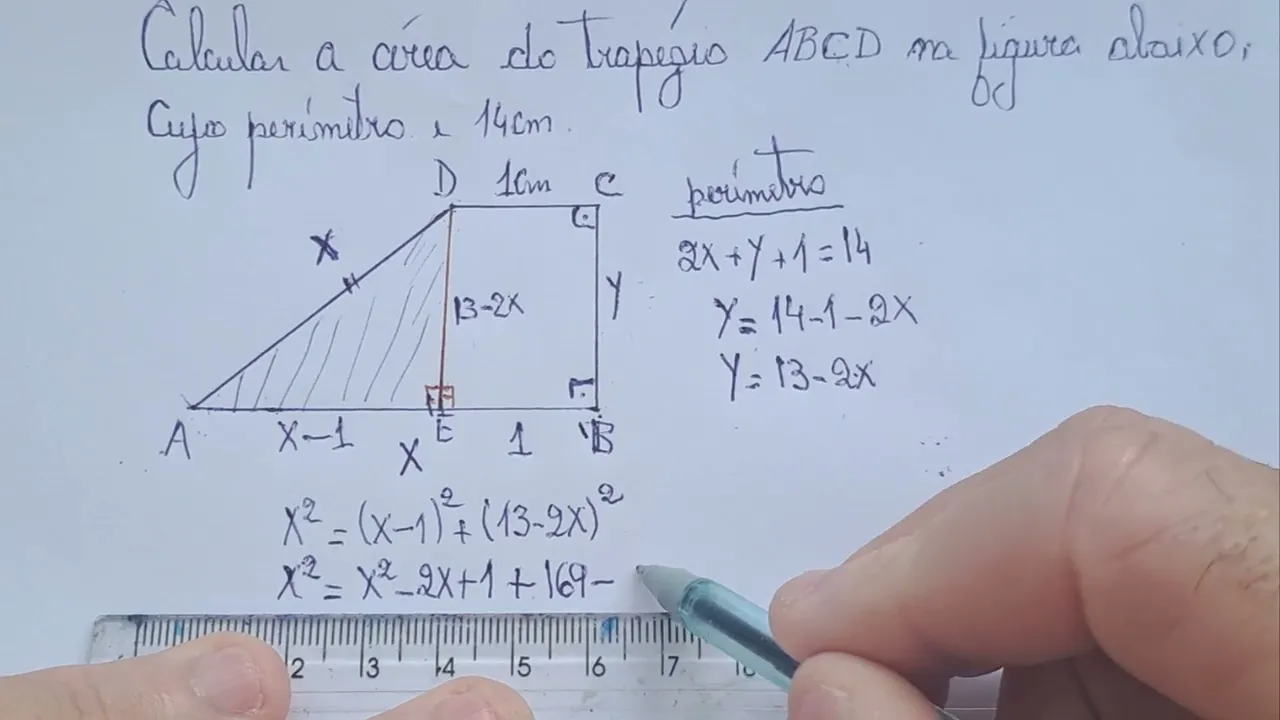 Calcular a área do trapézio ABCD na figura abaixo,
Cujo perímetro é 14cm.
D 1cm C
perímetro
X
2X+Y+1=14
13-2X
Y
Y=14-1-2X
Y=13-2X
A X-1 E 1 B
X
X²=(X-1)²+(13-2X)²
X²=X²-2X+1+169-
2 3 4 5 6 7